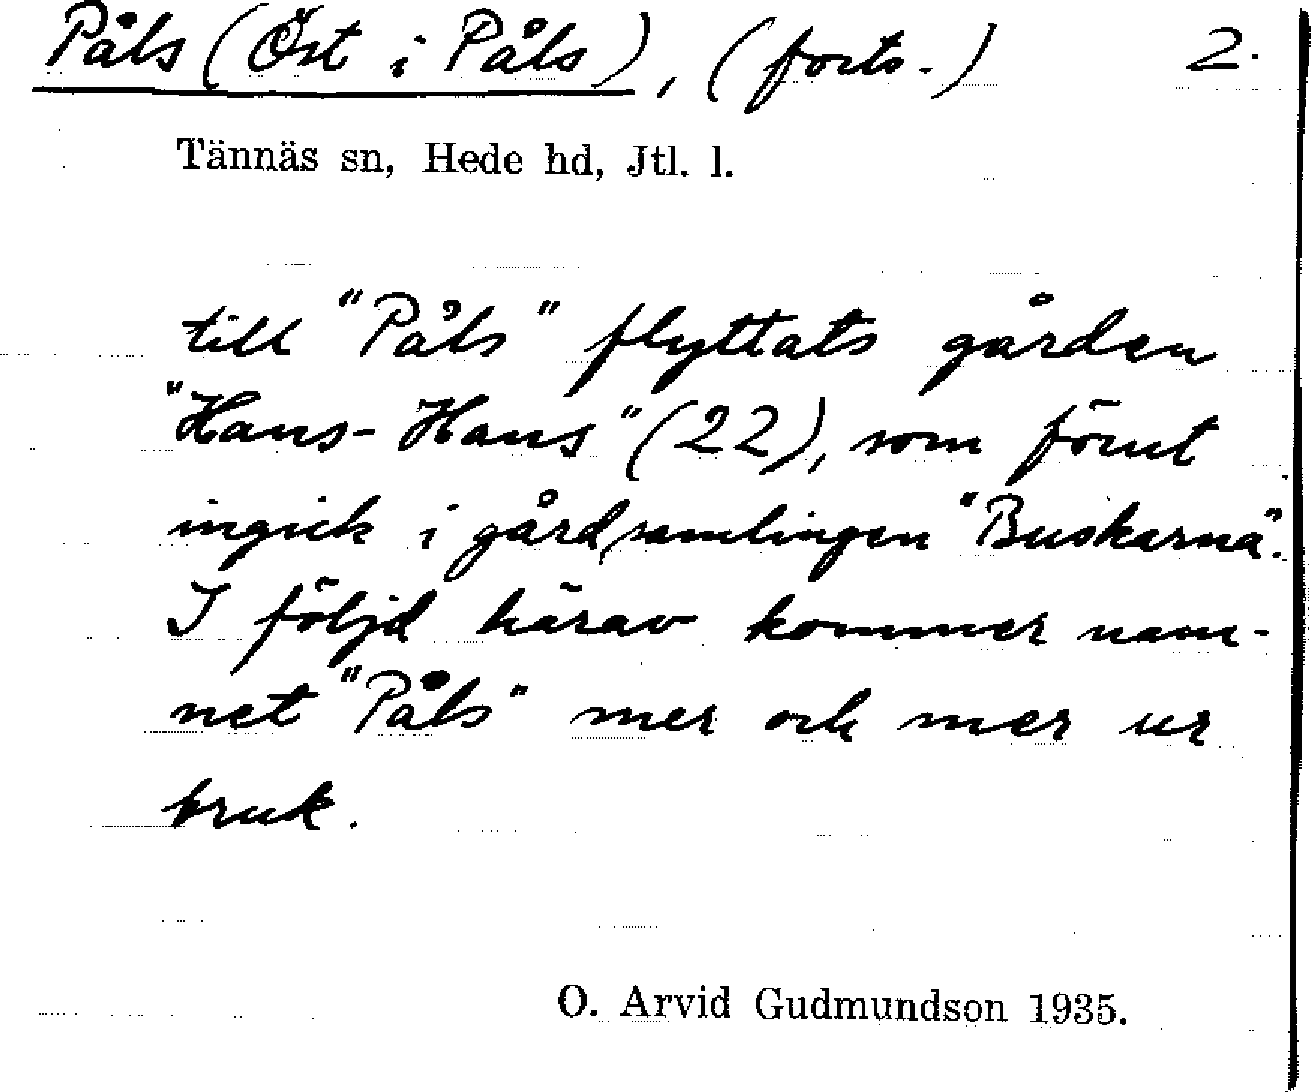 Påls (Öst i Påls), (forts.) 2.
Tännäs sn, Hede hd, Jtl. l.
till "Påls" flyttats gården
"Hans-Hans" (22), som förut
ingick i gårdsamlingen "Buskarna".
I följd härav kommer nam-
net "Påls" mer och mer ur
bruk.
O. Arvid Gudmundson 1935.